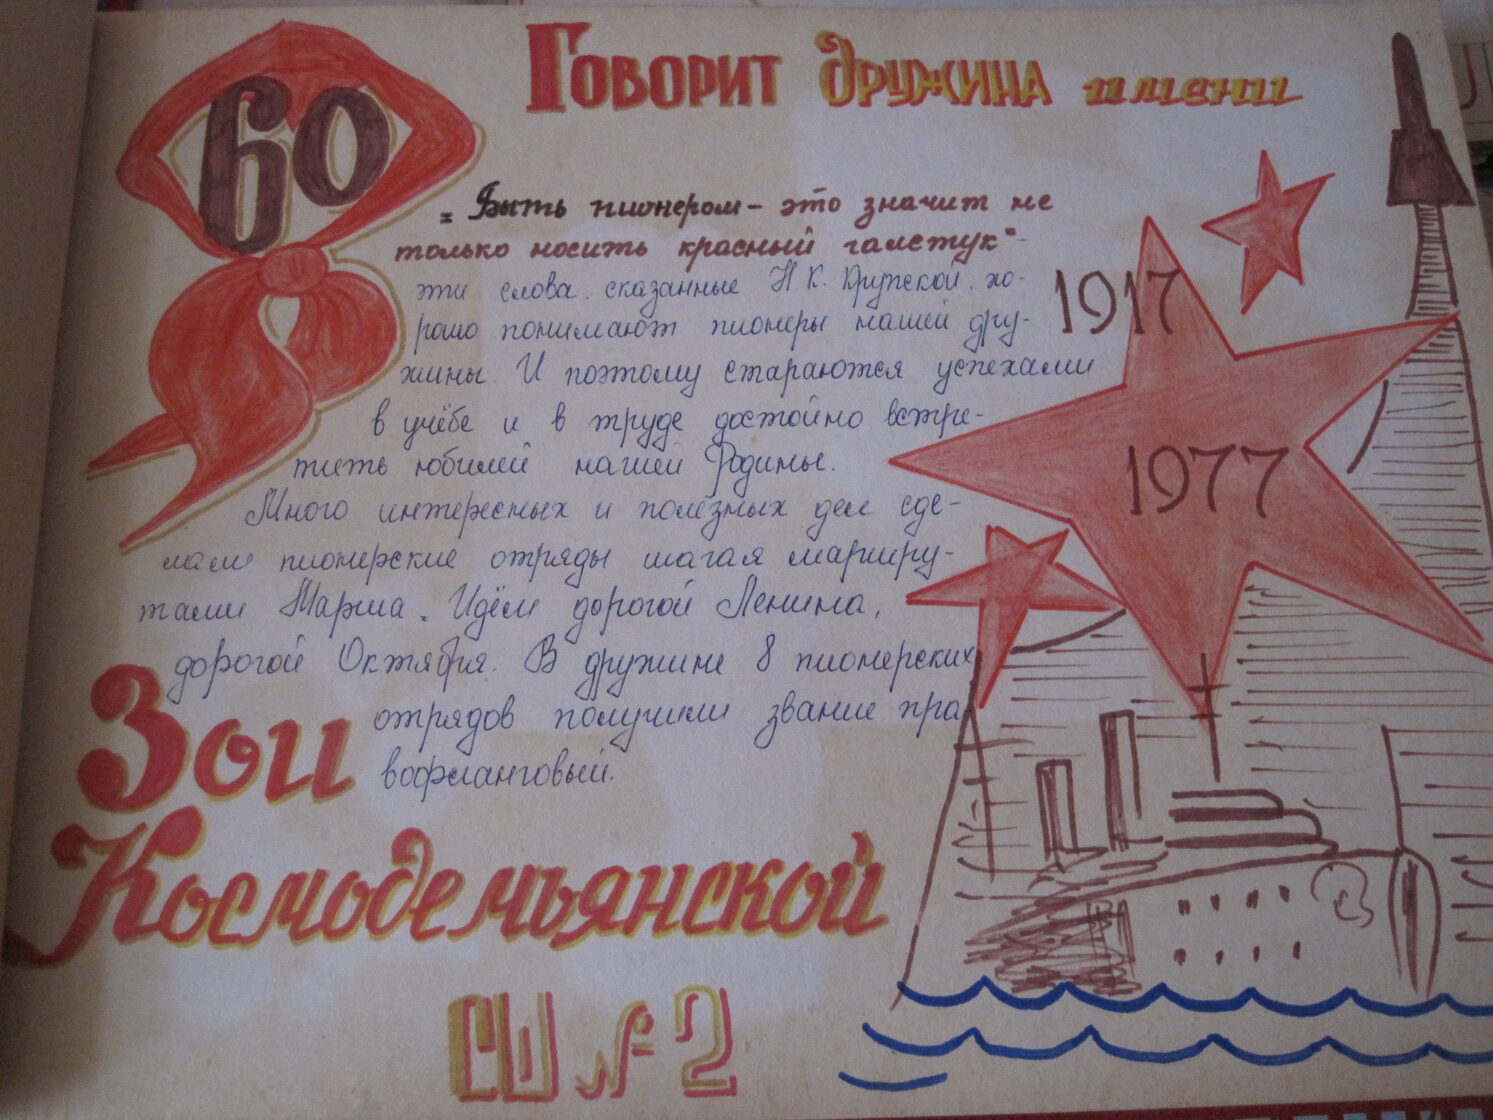 60
Говорит дружина имени
„Быть пионером – это значит не
только носить красный галстук" -
эти слова, сказанные Н.К. Крупской, хо-
рошо понимают пионеры нашей дру-
жины. И поэтому стараются успехами
в учёбе и в труде достойно встре-
тить юбилей нашей Родины.
Много интересных и полезных дел сде-
лали пионерские отряды шагая маршру-
тами Марша „Идём дорогой Ленина,
дорогой Октября. В дружине 8 пионерских
отрядов получили звание пра
вофланговый.
Зои
Космодемьянской
СШ № 2
1917
1977